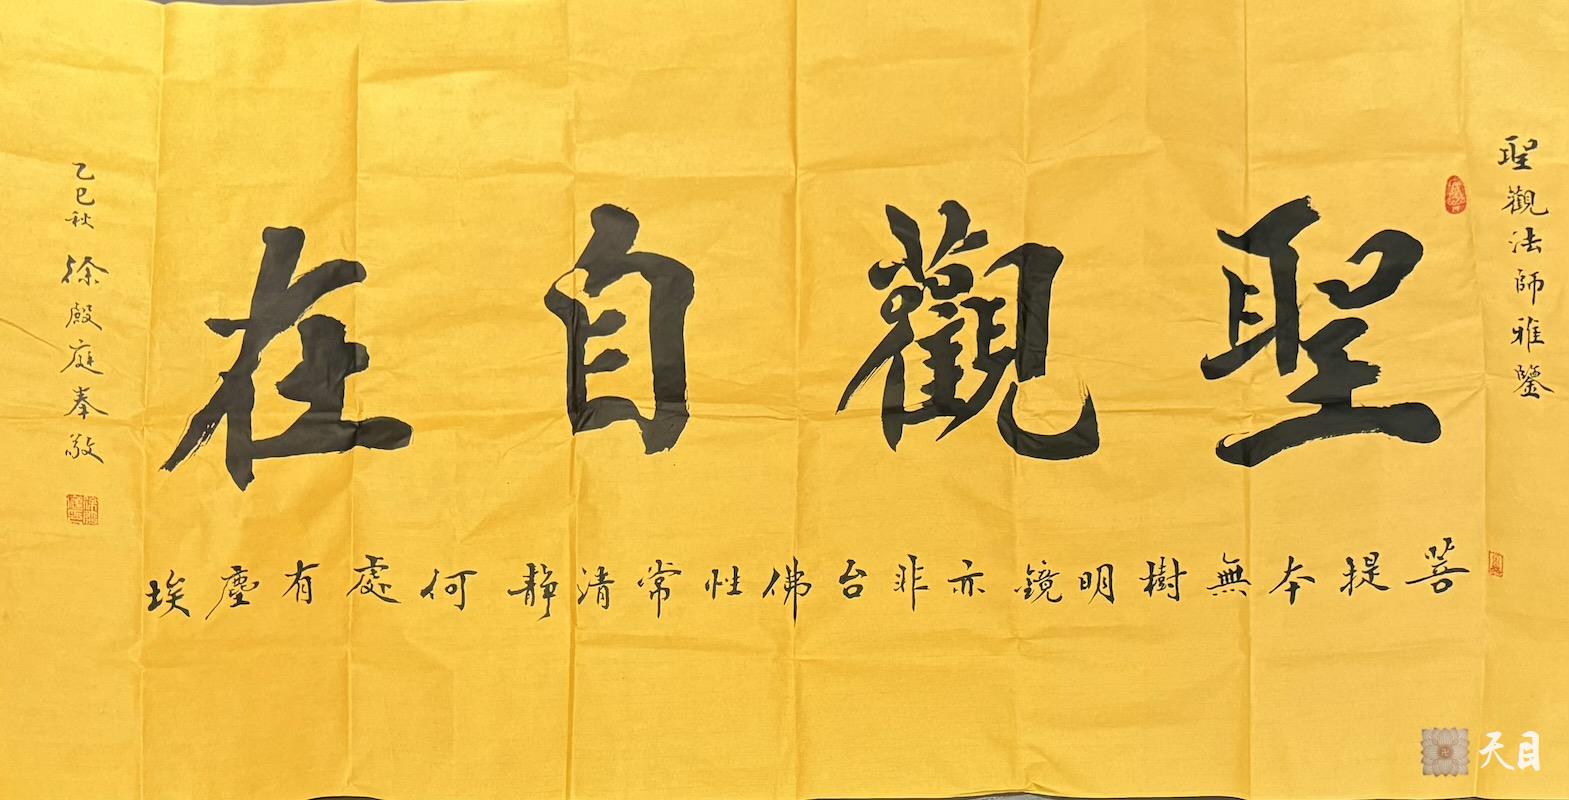 聖觀法師雅鑒
聖觀自在
菩提本無樹明鏡亦非台佛性常清靜何處有塵埃
乙巳秋 徐殿庭奉敬
天目